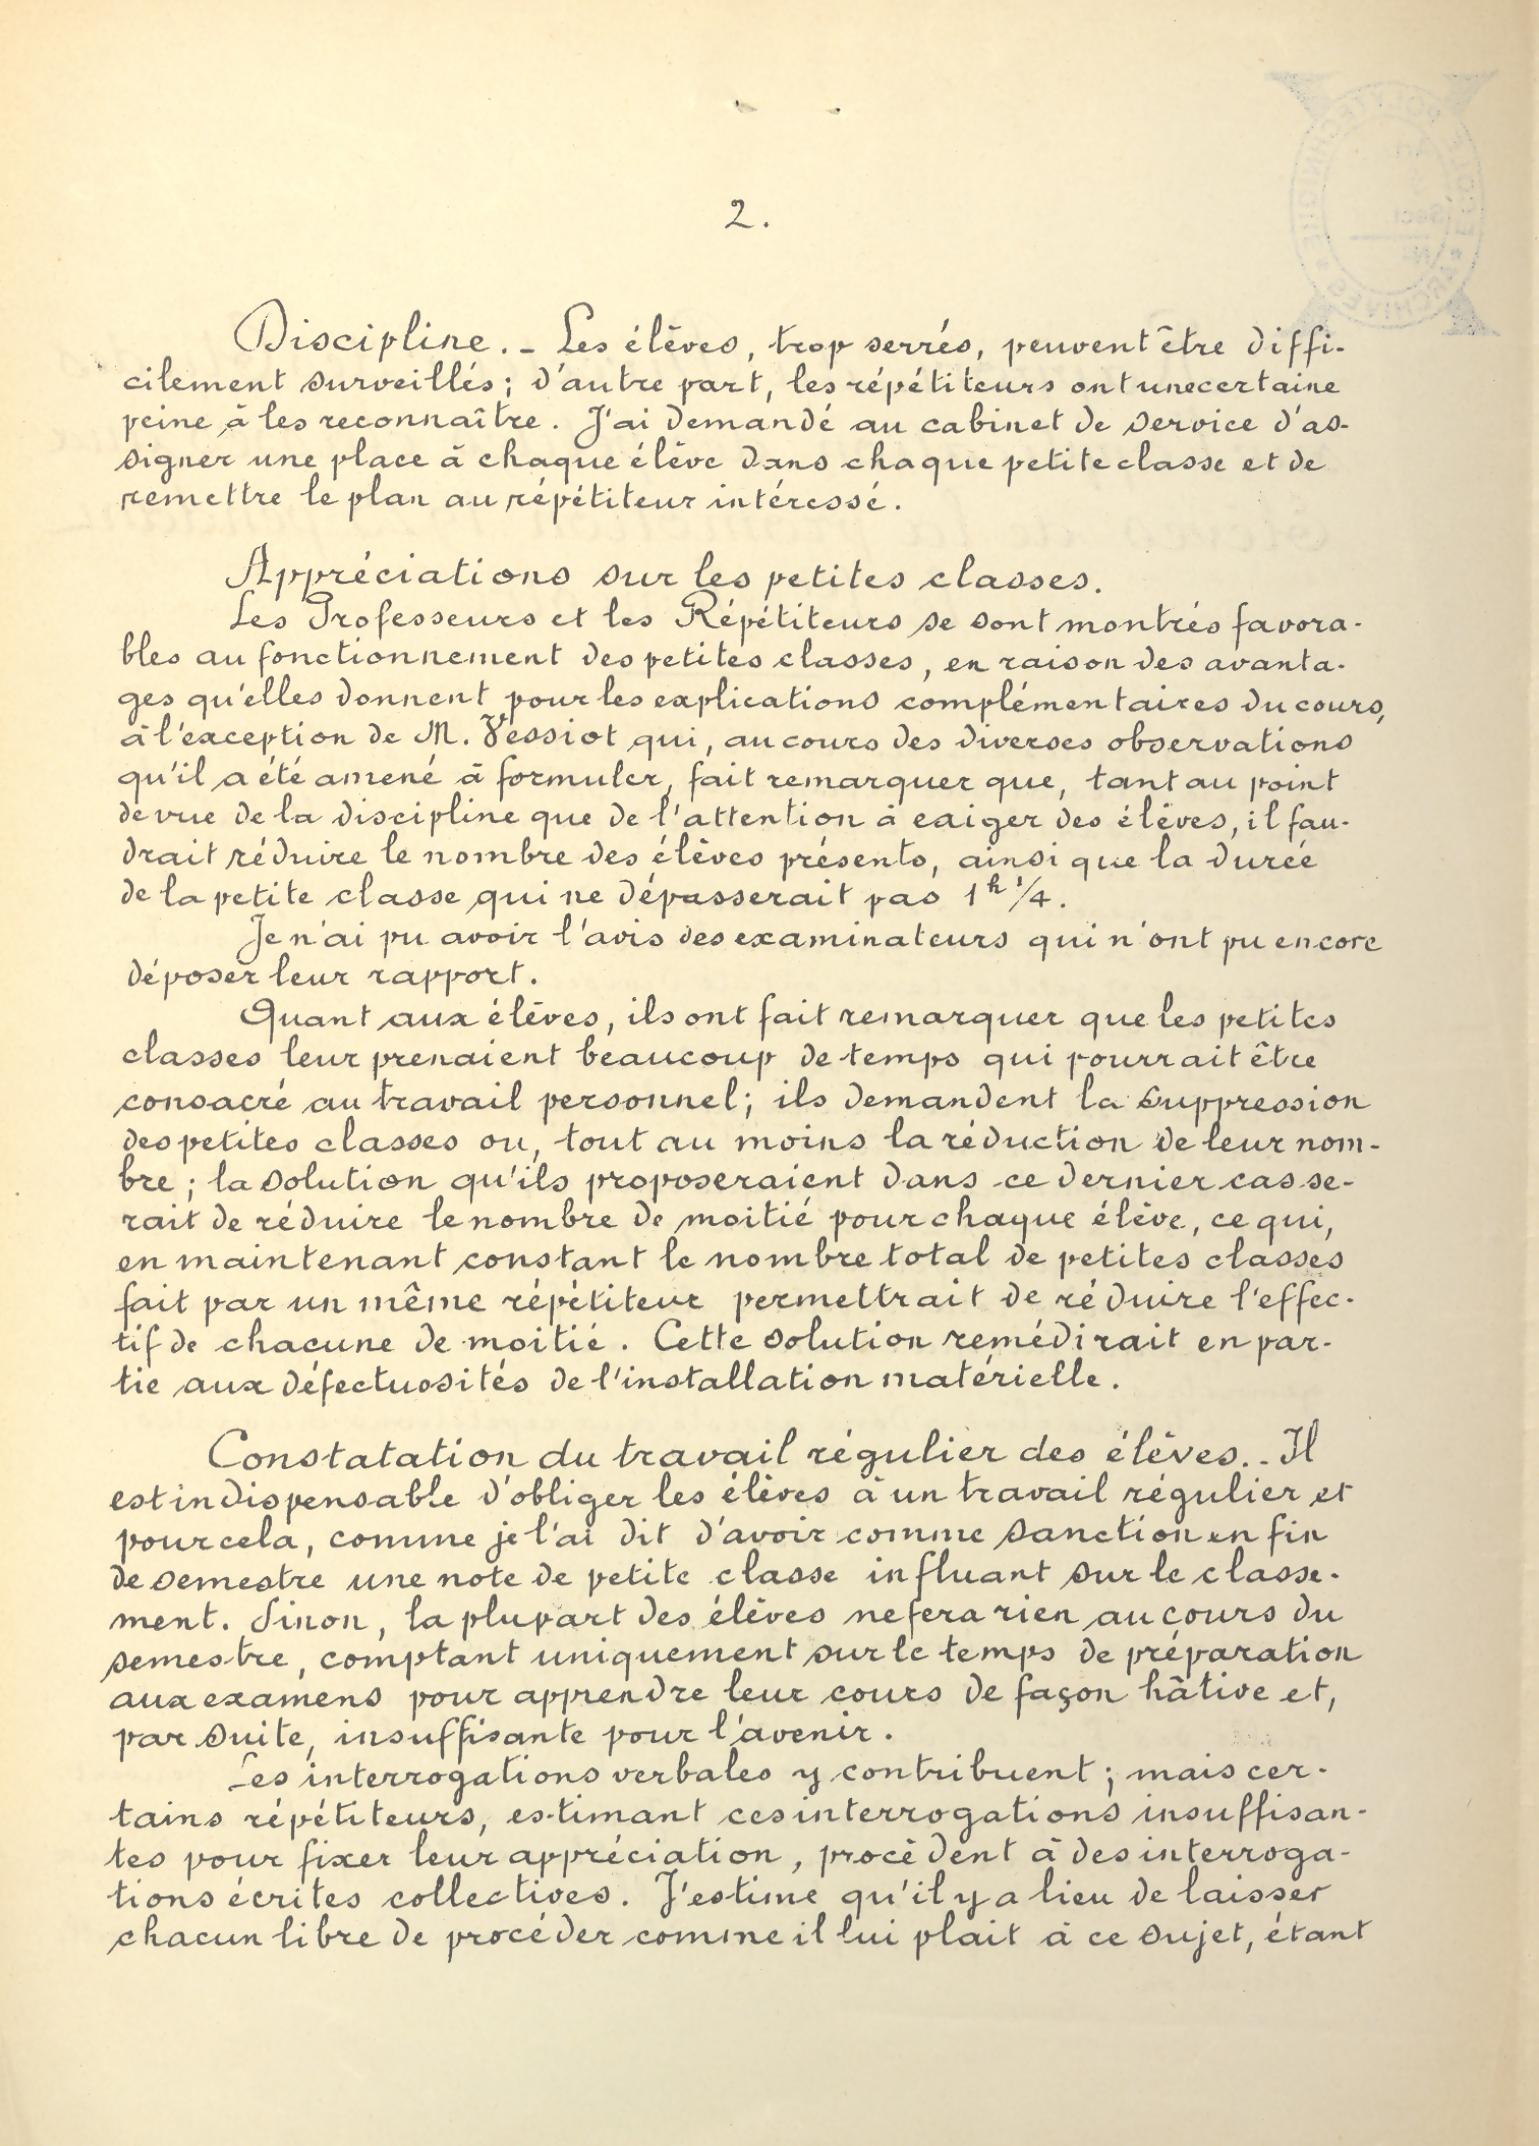 2.
Discipline. - Les élèves, trop serrés, peuvent être diffi-
cilement surveillés; d'autre part, les répétiteurs ont une certaine
peine à les reconnaître. J'ai demandé au cabinet de service d'as-
signer une place à chaque élève dans chaque petite classe et de
remettre le plan au répétiteur intéressé.
Appréciations sur les petites classes.
Les Professeurs et les Répétiteurs se sont montrés favora-
bles au fonctionnement des petites classes, en raison des avanta-
ges qu'elles donnent pour les explications complémentaires du cours,
à l'exception de M. Vessiot qui, au cours des diverses observations
qu'il a été amené à formuler, fait remarquer que, tant au point
de vue de la discipline que de l'attention à exiger des élèves, il fau-
drait réduire le nombre des élèves présents, ainsi que la durée
de la petite classe qui ne dépasserait pas 1h 1/4.
Je n'ai pu avoir l'avis des examinateurs qui n'ont pu encore
déposer leur rapport.
Quant aux élèves, ils ont fait remarquer que les petites
classes leur prenaient beaucoup de temps qui pourrait être
consacré au travail personnel; ils demandent la suppression
des petites classes ou, tout au moins la réduction de leur nom-
bre; la solution qu'ils proposeraient dans ce dernier cas se-
rait de réduire le nombre de moitié pour chaque élève, ce qui,
en maintenant constant le nombre total de petites classes
fait par un même répétiteur permettrait de réduire l'effec-
tif de chacune de moitié. Cette solution remédirait en par-
tie aux défectuosités de l'installation matérielle.
Constatation du travail régulier des élèves.. - Il
est indispensable d'obliger les élèves à un travail régulier et
pour cela, comme je l'ai dit d'avoir comme sanction en fin
de semestre une note de petite classe influant sur le classe-
ment. Sinon, la plupart des élèves ne fera rien au cours du
semestre, comptant uniquement sur le temps de préparation
aux examens pour apprendre leur cours de façon hâtive et,
par suite, insuffisante pour l'avenir.
Les interrogations verbales y contribuent; mais cer-
tains répétiteurs, estimant ces interrogations insuffisan-
tes pour fixer leur appréciation, procèdent à des interroga-
tions écrites collectives. J'estime qu'il y a lieu de laisser
chacun libre de procéder comme il lui plait à ce sujet, étant